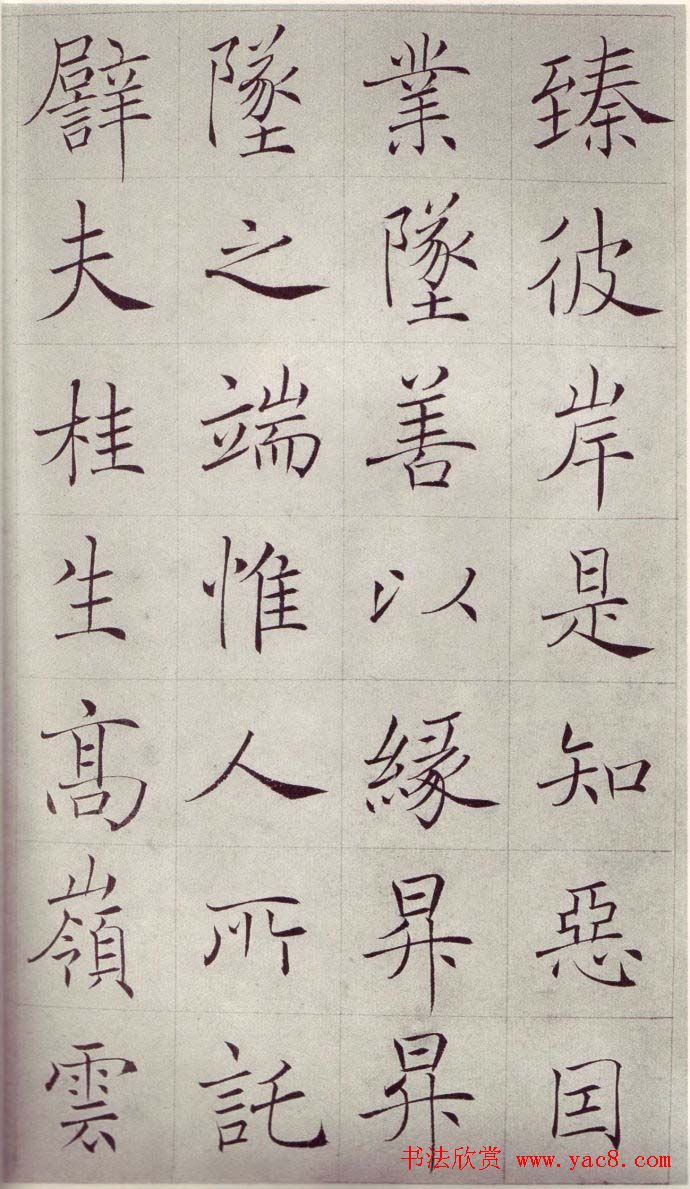 臻彼岸是知惡囙
業墜善以緣昇昇
墜之端惟人所託
譬夫桂生髙嶺雲
书法欣赏 www.yac8.com